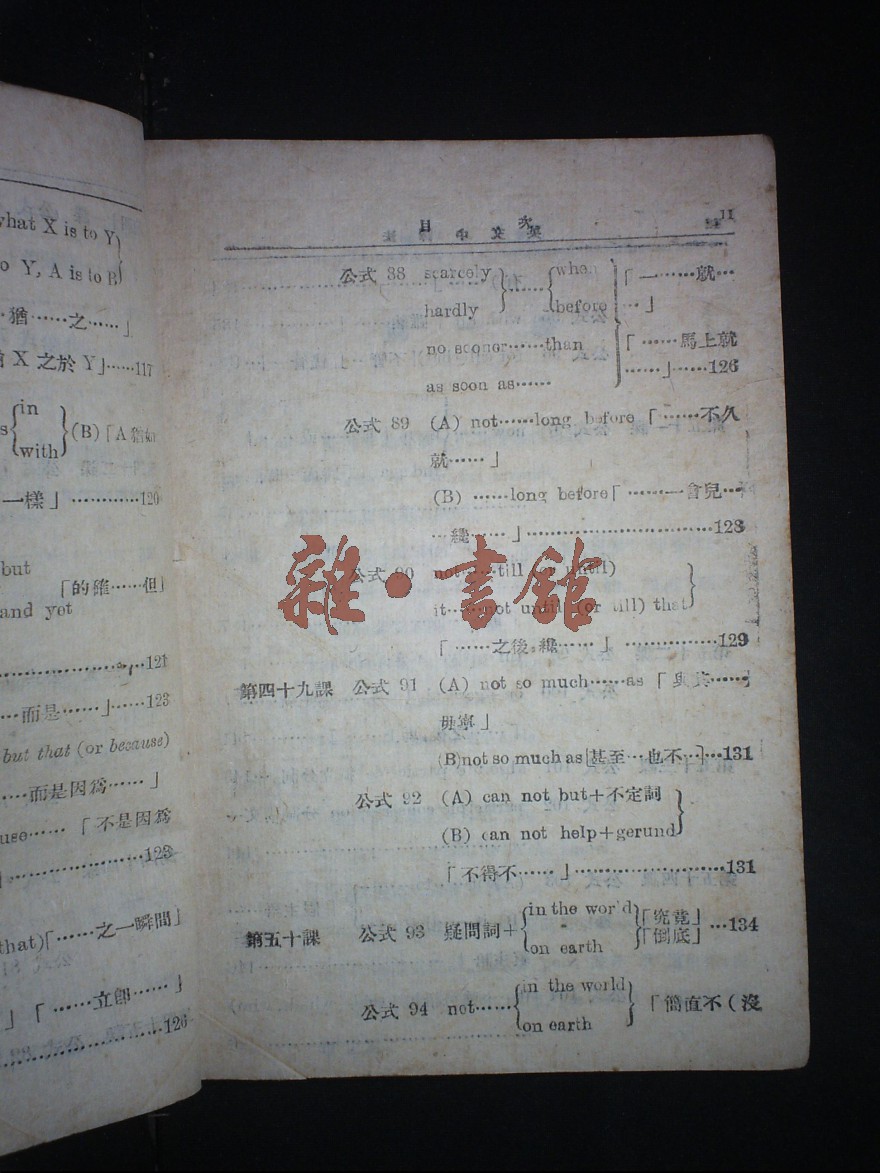 what X is to Y
to Y, A is to B
猶……之……」
X 之於 Y」……117
in
with
(B)「A 猶如
一樣」…………120
but
「的確……但」
and yet
……121
…而是……」……123
but that (or because)
……而是因爲……」
……「不是因爲
……123
that)「……之一瞬間」
」「……立卽……」
……126
目 次 11
公式 88 scarcely
hardly
……
when
before
「一……就…
…」
no sooner……than
as soon as……
「……馬上就
……」……126
公式 89 (A) not……long before「……不久
就……」
(B) ……long before「……一會兒…
…纔……」……………………128
公式 90 not……till (or until)
it……not until (or till) that
「……之後纔……」………………129
第四十九課 公式 91 (A) not so much……as「與其……
毋寧」
(B)not so much as[甚至…也不…]…131
公式 92 (A) can not but+不定詞
(B) can not help+gerund
「不得不……」……………………131
第五十課 公式 93 疑問詞+
in the world
on earth
「究竟」
「倒底」
…134
公式 94 not……
in the world
on earth
「簡直不(沒
雜·書館